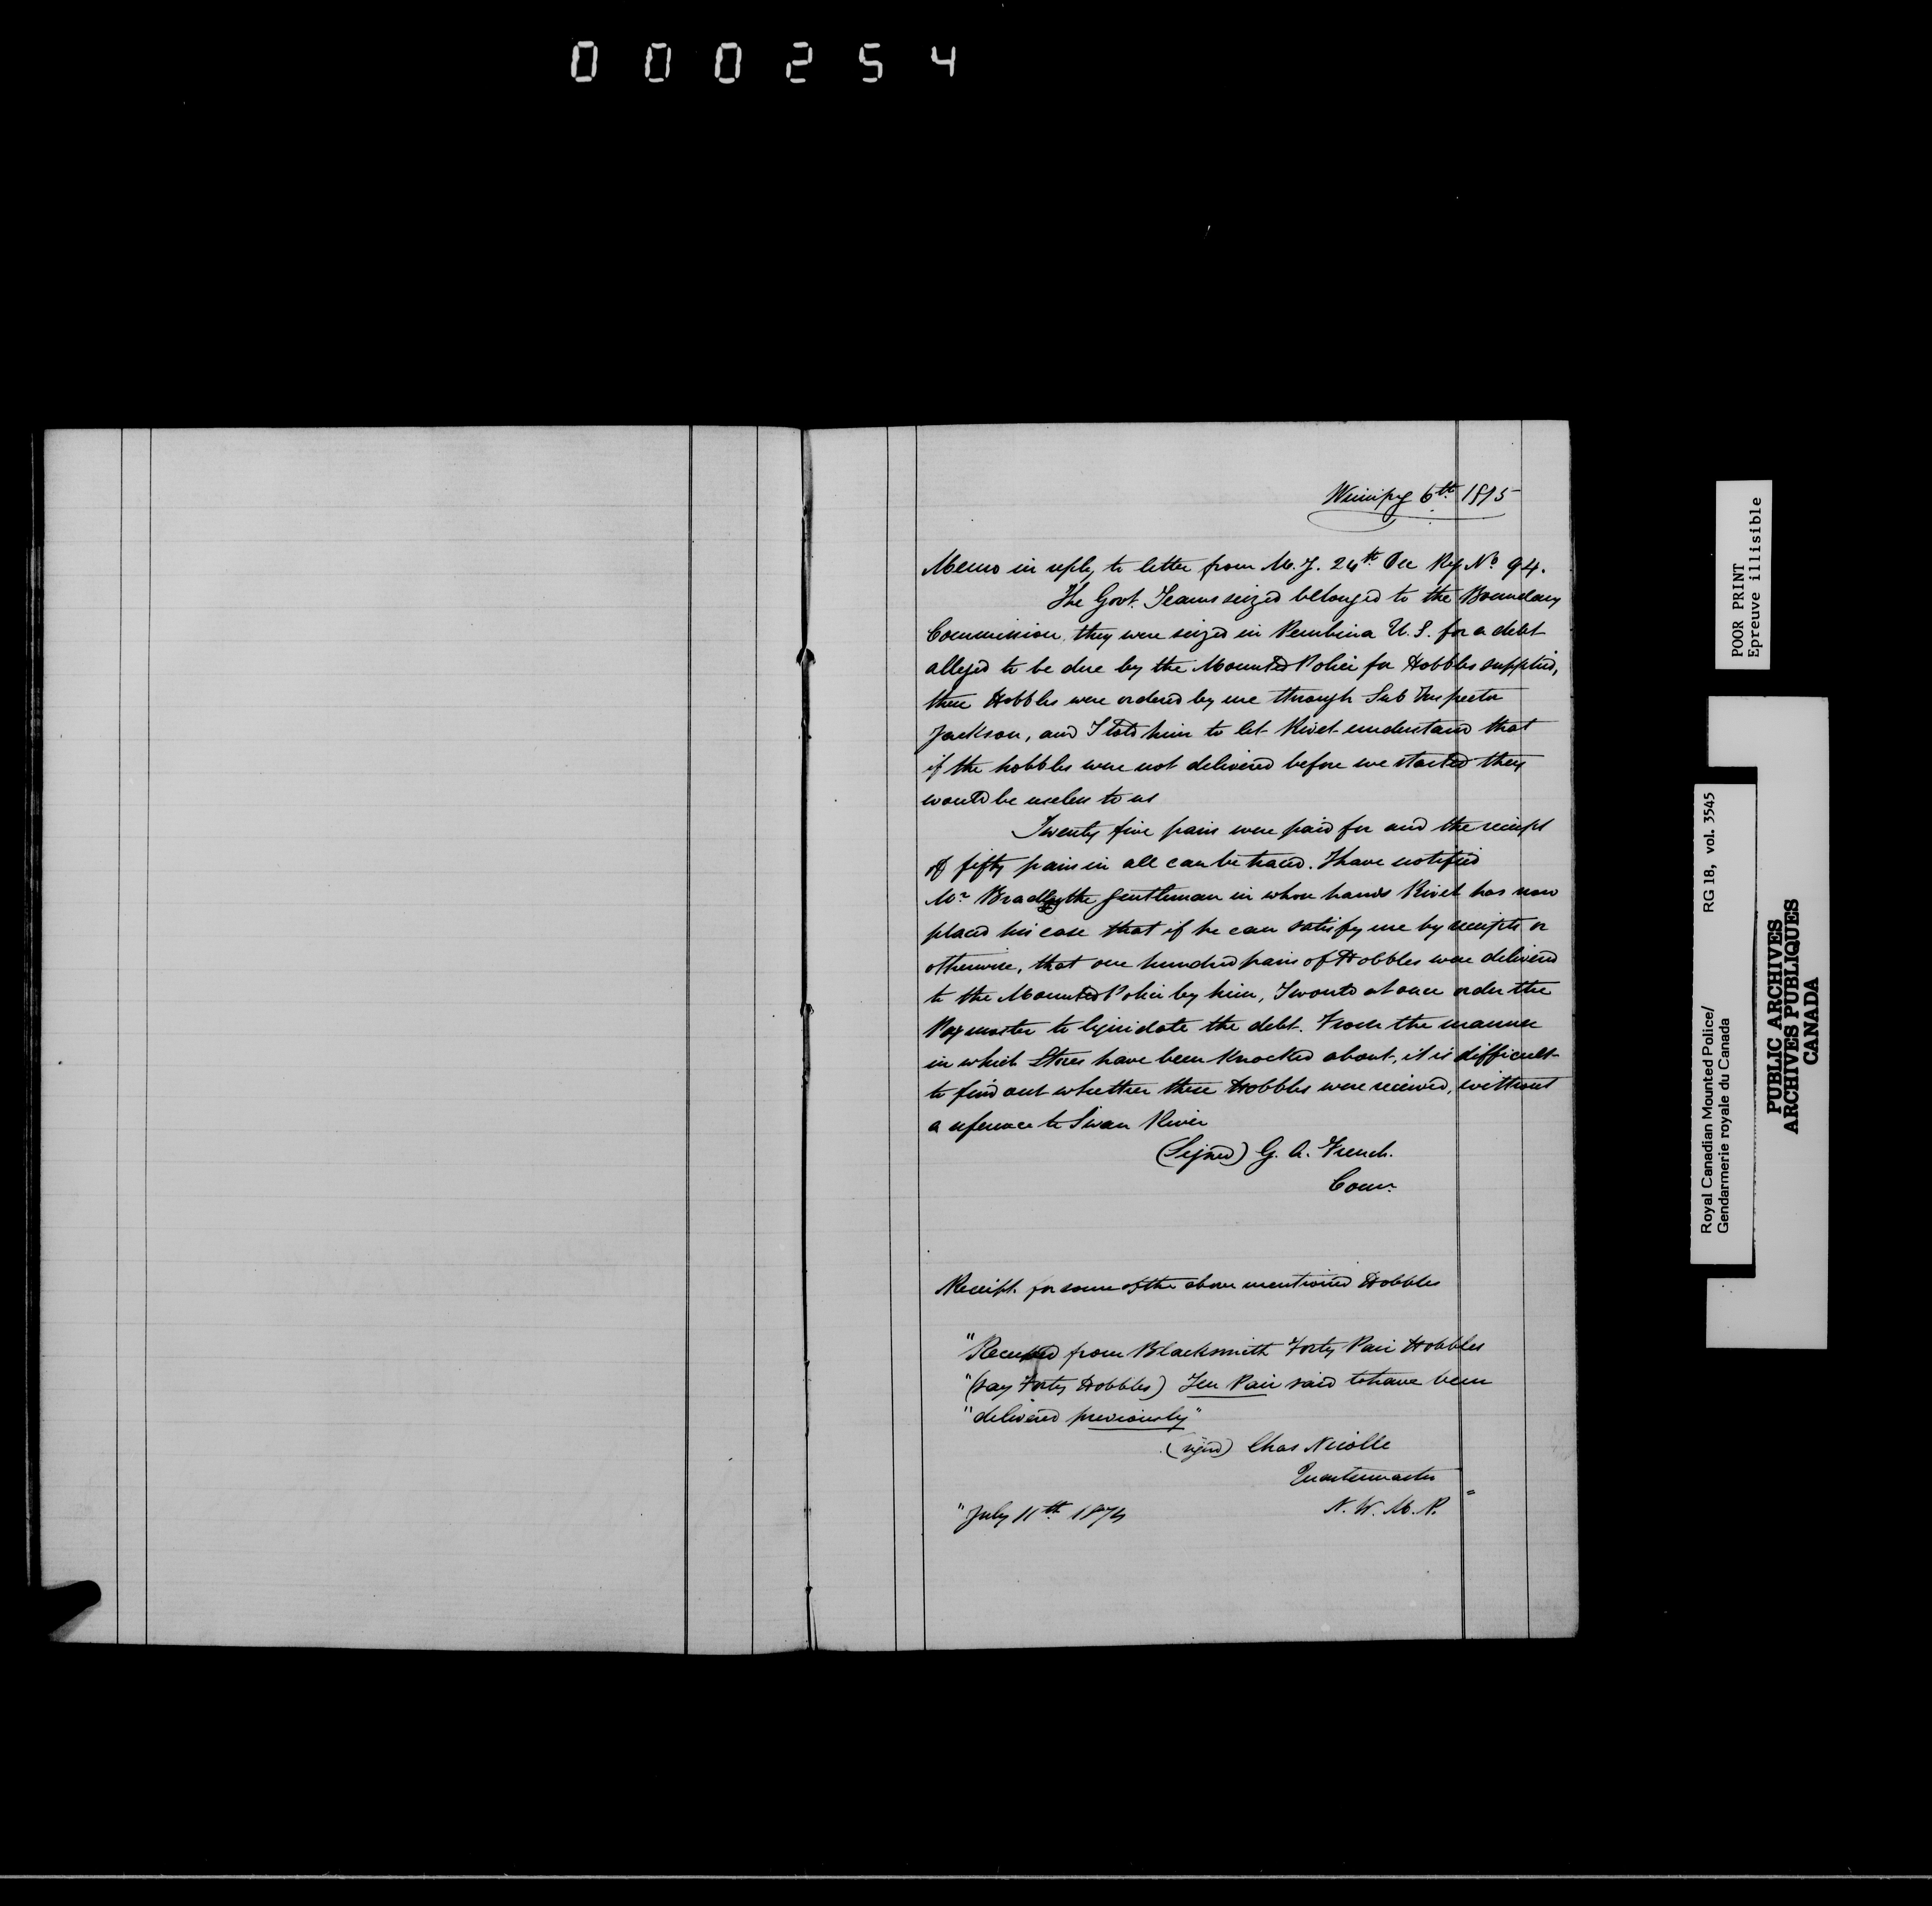 000254
Winnipeg 6th 1875
Memo in reply to letter from M. J. 24th Dec Reg No 94.
The Govt. Teams seized belonged to the Boundary
Commission, they were seized in Pembina U.S. for a debt
alleged to be due by the Mounted Police for Hobbles supplied,
these Hobbles were ordered by me through Sub Inspector
Jackson, and I told him to let Rivet understand that
if the hobbles were not delivered before we started they
would be useless to us
Twenty five pairs were paid for and the receipt
of fifty pairs in all can be traced. I have notified
Mr Bradley the gentleman in whose hands Rivet has now
placed his case that if he can satisfy me by receipts or
otherwise, that one hundred pairs of Hobbles were delivered
to the Mounted Police by him, I would at once order the
Paymaster to liquidate the debt. From the manner
in which Stores have been knocked about, it is difficult
to find out whether these Hobbles were received, without
a reference to Swan River
(Signed) G. A. French.
Comr.
Receipt for some of the above mentioned Hobbles
"Received from Blacksmith Forty Pair Hobbles
"(say Forty Hobbles) Ten Pair said to have been
"delivered previously"
(signed) Chas Nicolle
Quartermaster
N. W. M. P. "
"July 11th 1874
POOR PRINT
Epreuve illisible
RG 18, vol. 3545
Royal Canadian Mounted Police/
Gendarmerie royale du Canada
PUBLIC ARCHIVES
ARCHIVES PUBLIQUES
CANADA